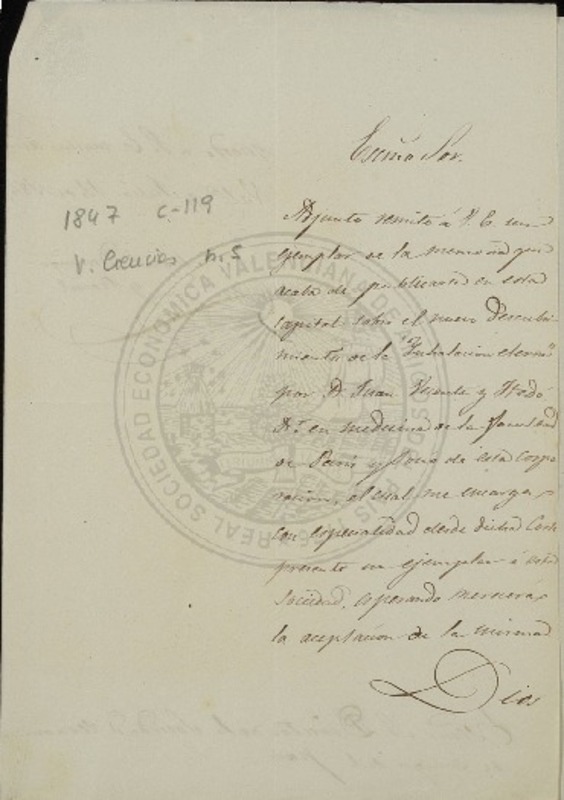 Exmo Sor.
1847 C-119
V. Ciencias n. 5
Adjunto remito á V. E. un
ejemplar de la memoria que
acaba de publicarse en esta
capital sobre el nuevo descubri-
miento de la "Inhalacion eterea"
por D. Juan Vicente y Hedó
Dr. en medicina de la Facultad
de Paris y Socio de esta Corpo
racion, el cual me encarga
con especialidad desde dicha Corte
presente un ejemplar á esta
Sociedad, esperando merecerá
la aceptacion de la misma
Dios
REAL SOCIEDAD ECONOMICA VALENCIANA DE AMIGOS DEL PAIS